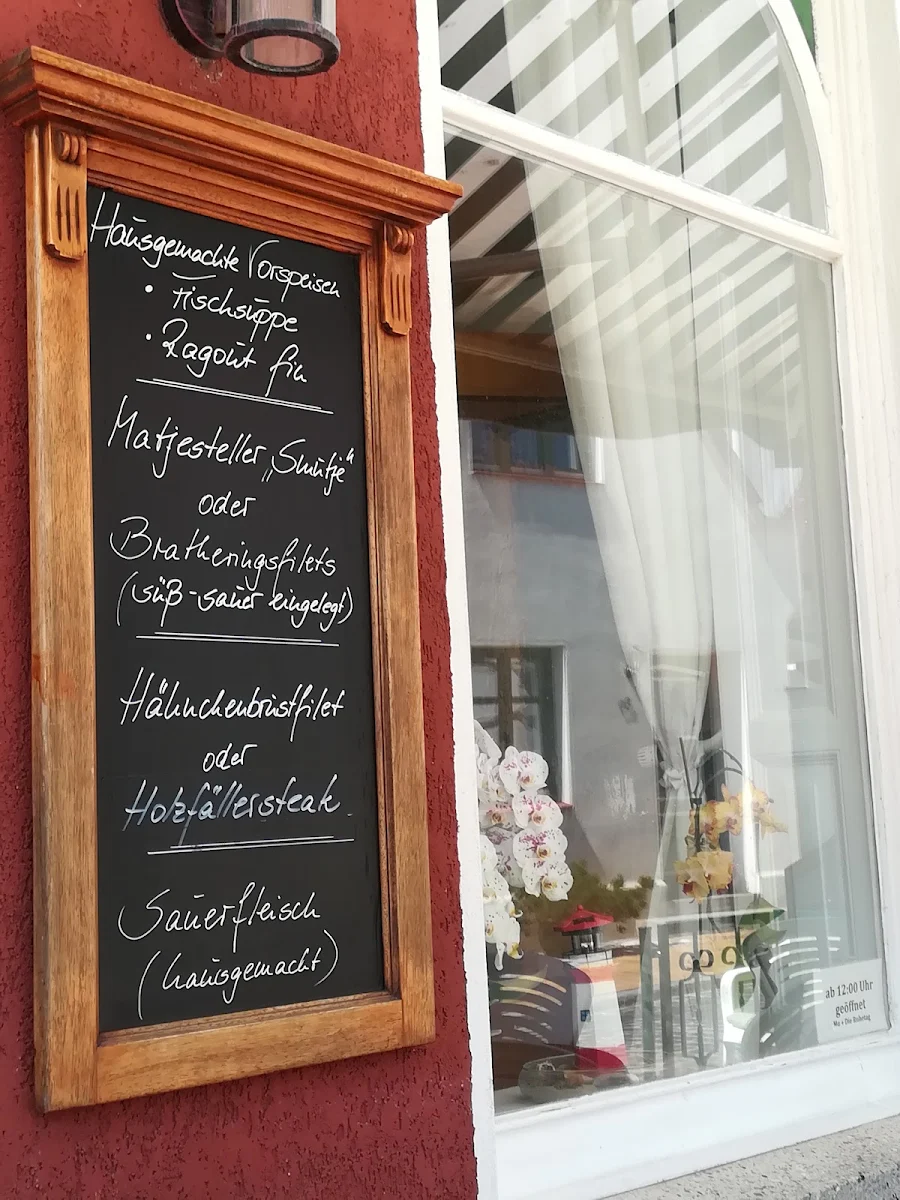 Hausgemachte Vorspeisen
• Fischsuppe
• Ragout fin
Matjesteller „Smutje“
oder
Bratheringsfilets
(süß-sauer eingelegt)
Hähnchenbrustfilet
oder
Holzfällersteak
Sauerfleisch
(hausgemacht)
ab 12:00 Uhr
geöffnet
Mo + Die Ruhetag